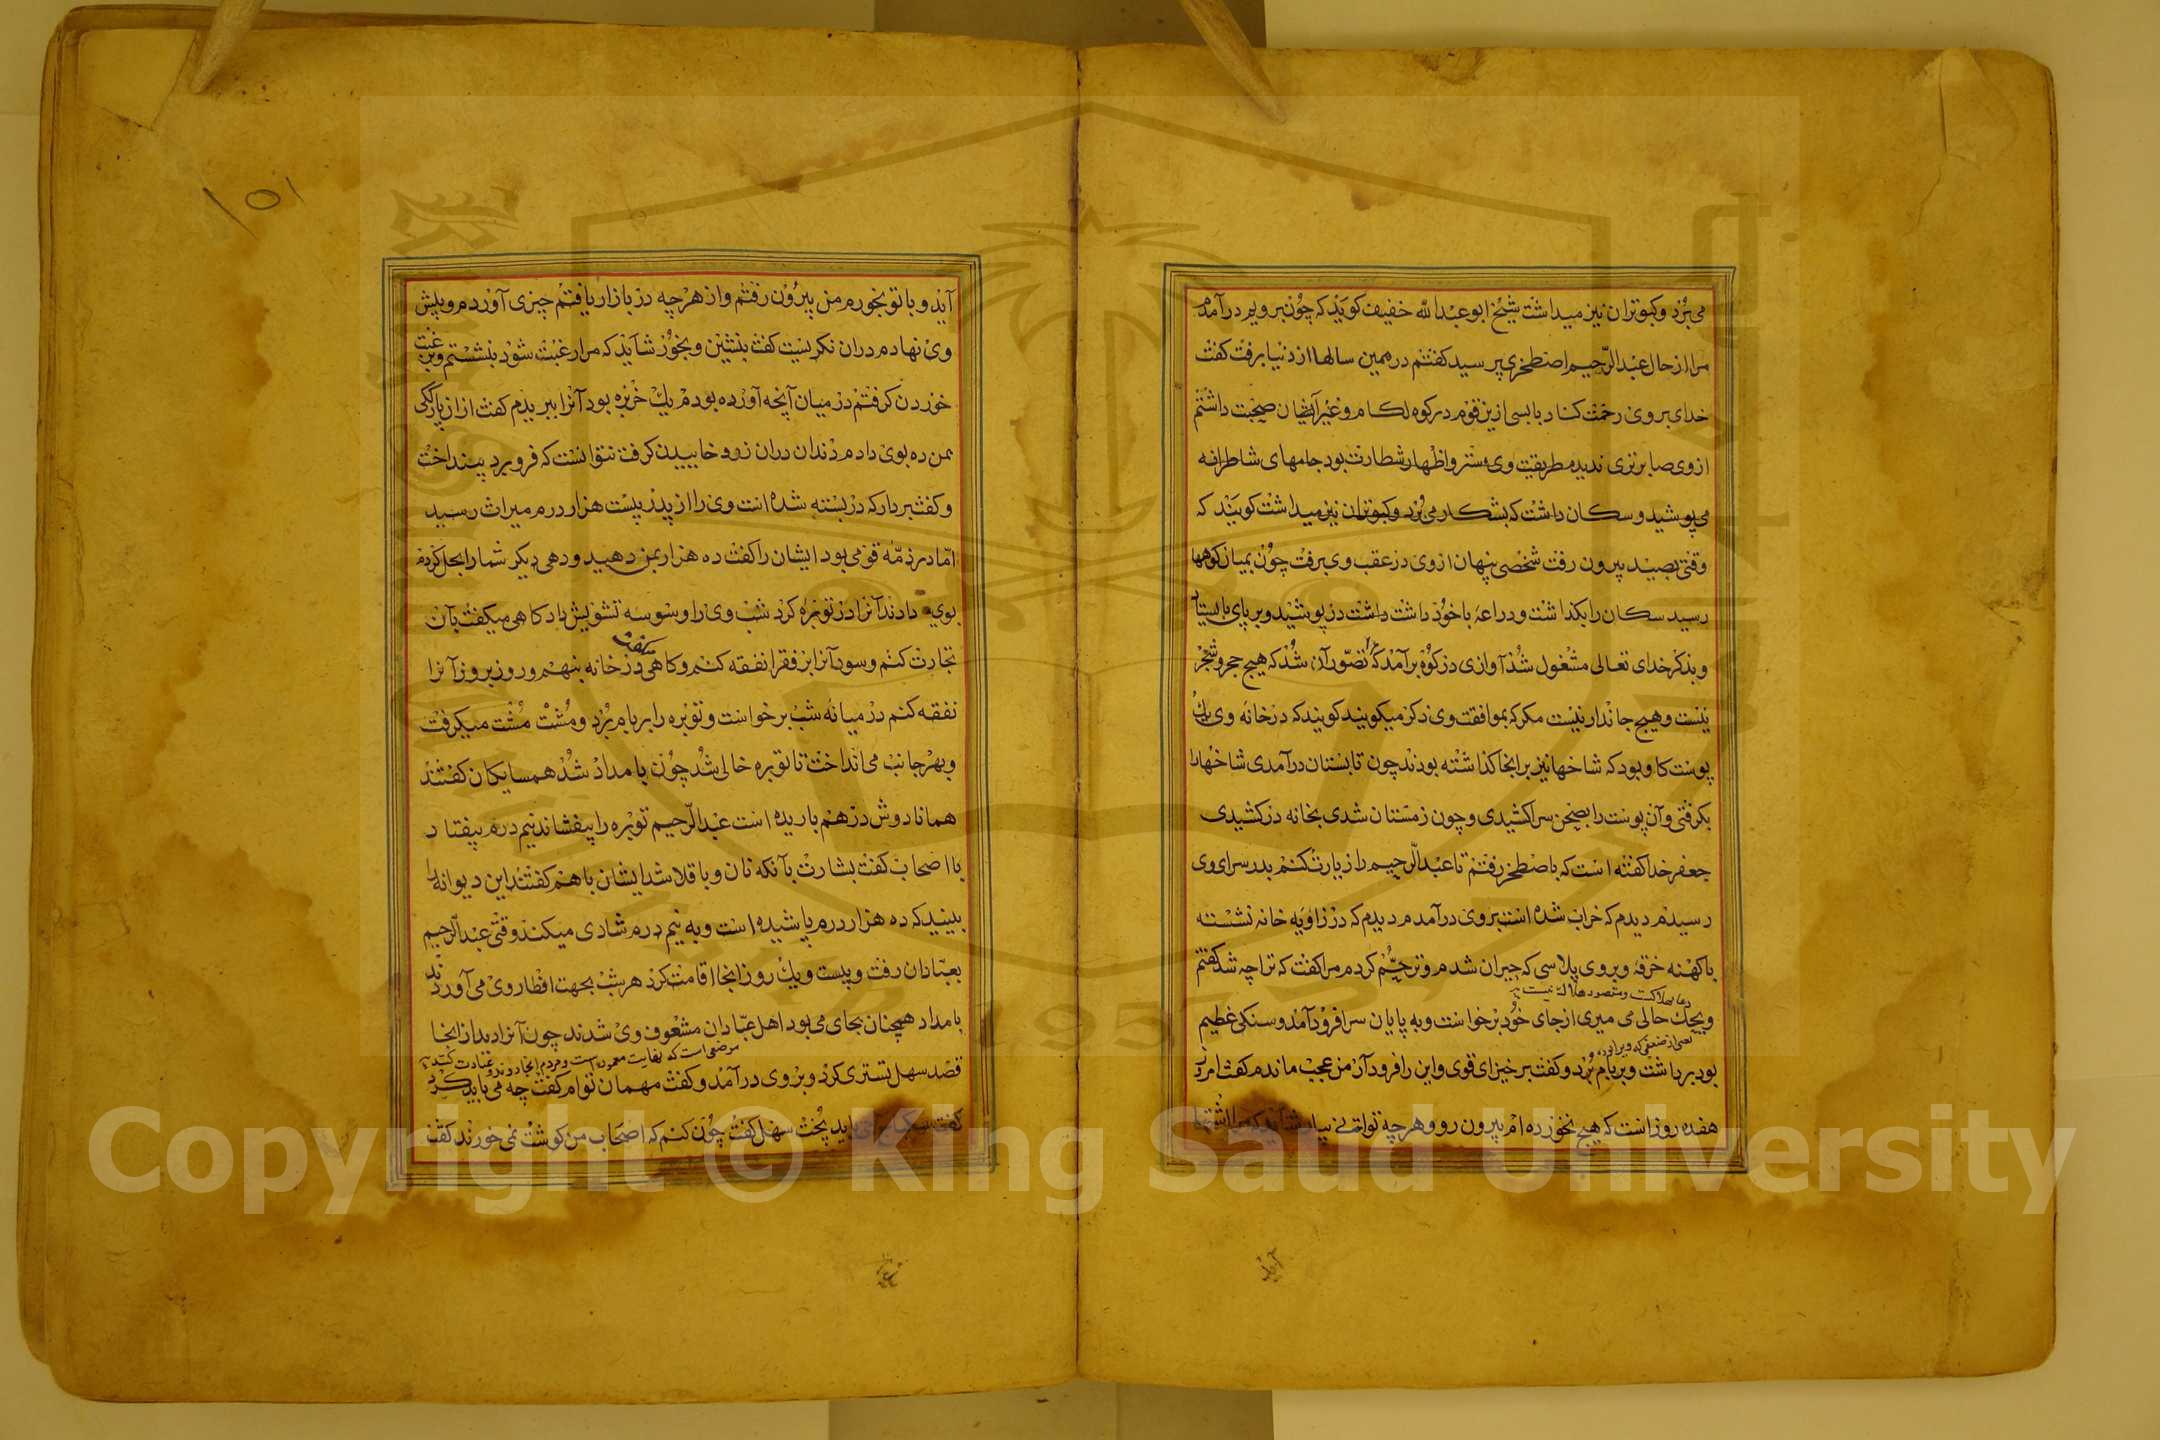 می برد و کبوتران نیز میداشت شیخ ابو عبدالله خفیف کوید که چون برویم درآمدم
مرا از حال عبدالرّحیم اصطخری پرسید کفتم درهمین سالها از دنیا برفت کفت
خدای بروی رحمت کناد با بسی ازین قوم درکوه لکام وغیر آن صحبت داشتم
ازوی صابرتری ندیدم طریقت وی ستر واظهار شطارت بود جامهای شاطرانه
می پوشید و سکان داشت که بشکار می برد وکبوتران نیز میداشت کویند که
وقتی بصید بیرون رفت شخصی پنهان ازوی درعقب وی برفت چون بمیان کوهها
رسید سکان را بکذاشت و دراعه با خود داشت درپوشید و بر پای بایستاد
وبذکر خدای تعالی مشغول شد آوازی درکوه برآمد که تصوّر آن شد که هیچ حجر وشجر
نیست وهیچ جاندار نیست مکر که بموافقت وی ذکر میکویند کویند که درخانه وی یک
پوست کاو بود که شاخها نیز برانجا کذاشته بودند چون تابستان درآمدی شاخها را
بکرفتی و آن پوست را بصحن سرا کشیدی و چون زمستان شدی بخانه درکشیدی
جعفر خدا کفته است که باصطخر رفتم تا عبدالرّحیم را زیارت کنم بدر سرای وی
رسیدم دیدم که خراب شده است بروی درآمدم دیدم که در زاویه خانه نشسته
با کهنه خرقه وبروی پلاسی که حیران شدم و ترحّم کردم مرا کفت که ترا چه شد کفتم
ویحک حالی می میری از جای خود برخواست وبه پایان سرا فرود آمد وسنکی عظیم
بود برداشت وبر بام برد وکفت برخیز ای قوی واین را فرود آر من عجب ماندم کفت امروز
هفده روز است که هیچ نخورده ام بیرون رو و هرچه توانی بیار شاید که مرا اشتها
آید
101
آید و با تو بخورم من بیرون رفتم واز هرچه در بازار یافتم چیزی آوردم و پیش
وی نهادم دران نکریست کفت بنشین و بخور شاید که مرا رغبت شود بنشستم وبرغبت
خوردن کرفتم درمیان آنچه آورده بودم یک خربزه بود آنرا ببریدم کفت ازان پارککی
بمن ده بوی دادم دندان دران زود خاییدن کرفت نتوانست که فرو برد بینداخت
وکفت بردار که در بسته شده است وی را از پدر بیست هزار درم میراث رسید
امّا در ذمّه قومی بود ایشان را کفت ده هزار بمن دهید و دهی دیکر شما را بحل کردم
بوی دادند آنرا درتوبره کرد شب وی را وسوسه تشویش داد کاهی میکفت بآن
میکفت
تجارت کنم وسود آنرا بر فقرا نفقه کنم و کاهی درخانه بنهم و روز بروز آنرا
نفقه کنم درمیانه شب برخواست و توبره را بر بام برد و مشت مشت میکرفت
وبهر جانب می انداخت تا توبره خالی شد چون بامداد شد همسایکان کفتند
همانا دوش درهم باریده است عبدالرّحیم توبره را بیفشاند نیم درم بیفتاد
با اصحاب کفت بشارت بآنکه نان و باقلا شد ایشان باهم کفتند این دیوانه را
بینید که ده هزار درم پاشیده است وبه نیم درم شادی میکند وقتی عبدالرّحیم
بعبّادان رفت و بیست ویک روز انجا اقامت کرد هر شب بجهت افطار وی می آوردند
بامداد همچنان بجای می بود اهل عبّادان مشعوف وی شدند چون آنرا دید از انجا
قصد سهل تستری کرد و بر وی درآمد وکفت مهمان توام کفت چه می باید کرد
کفت می باید پخت سهل کفت چون کنم که اصحاب من کوشت نمی خورند کفت